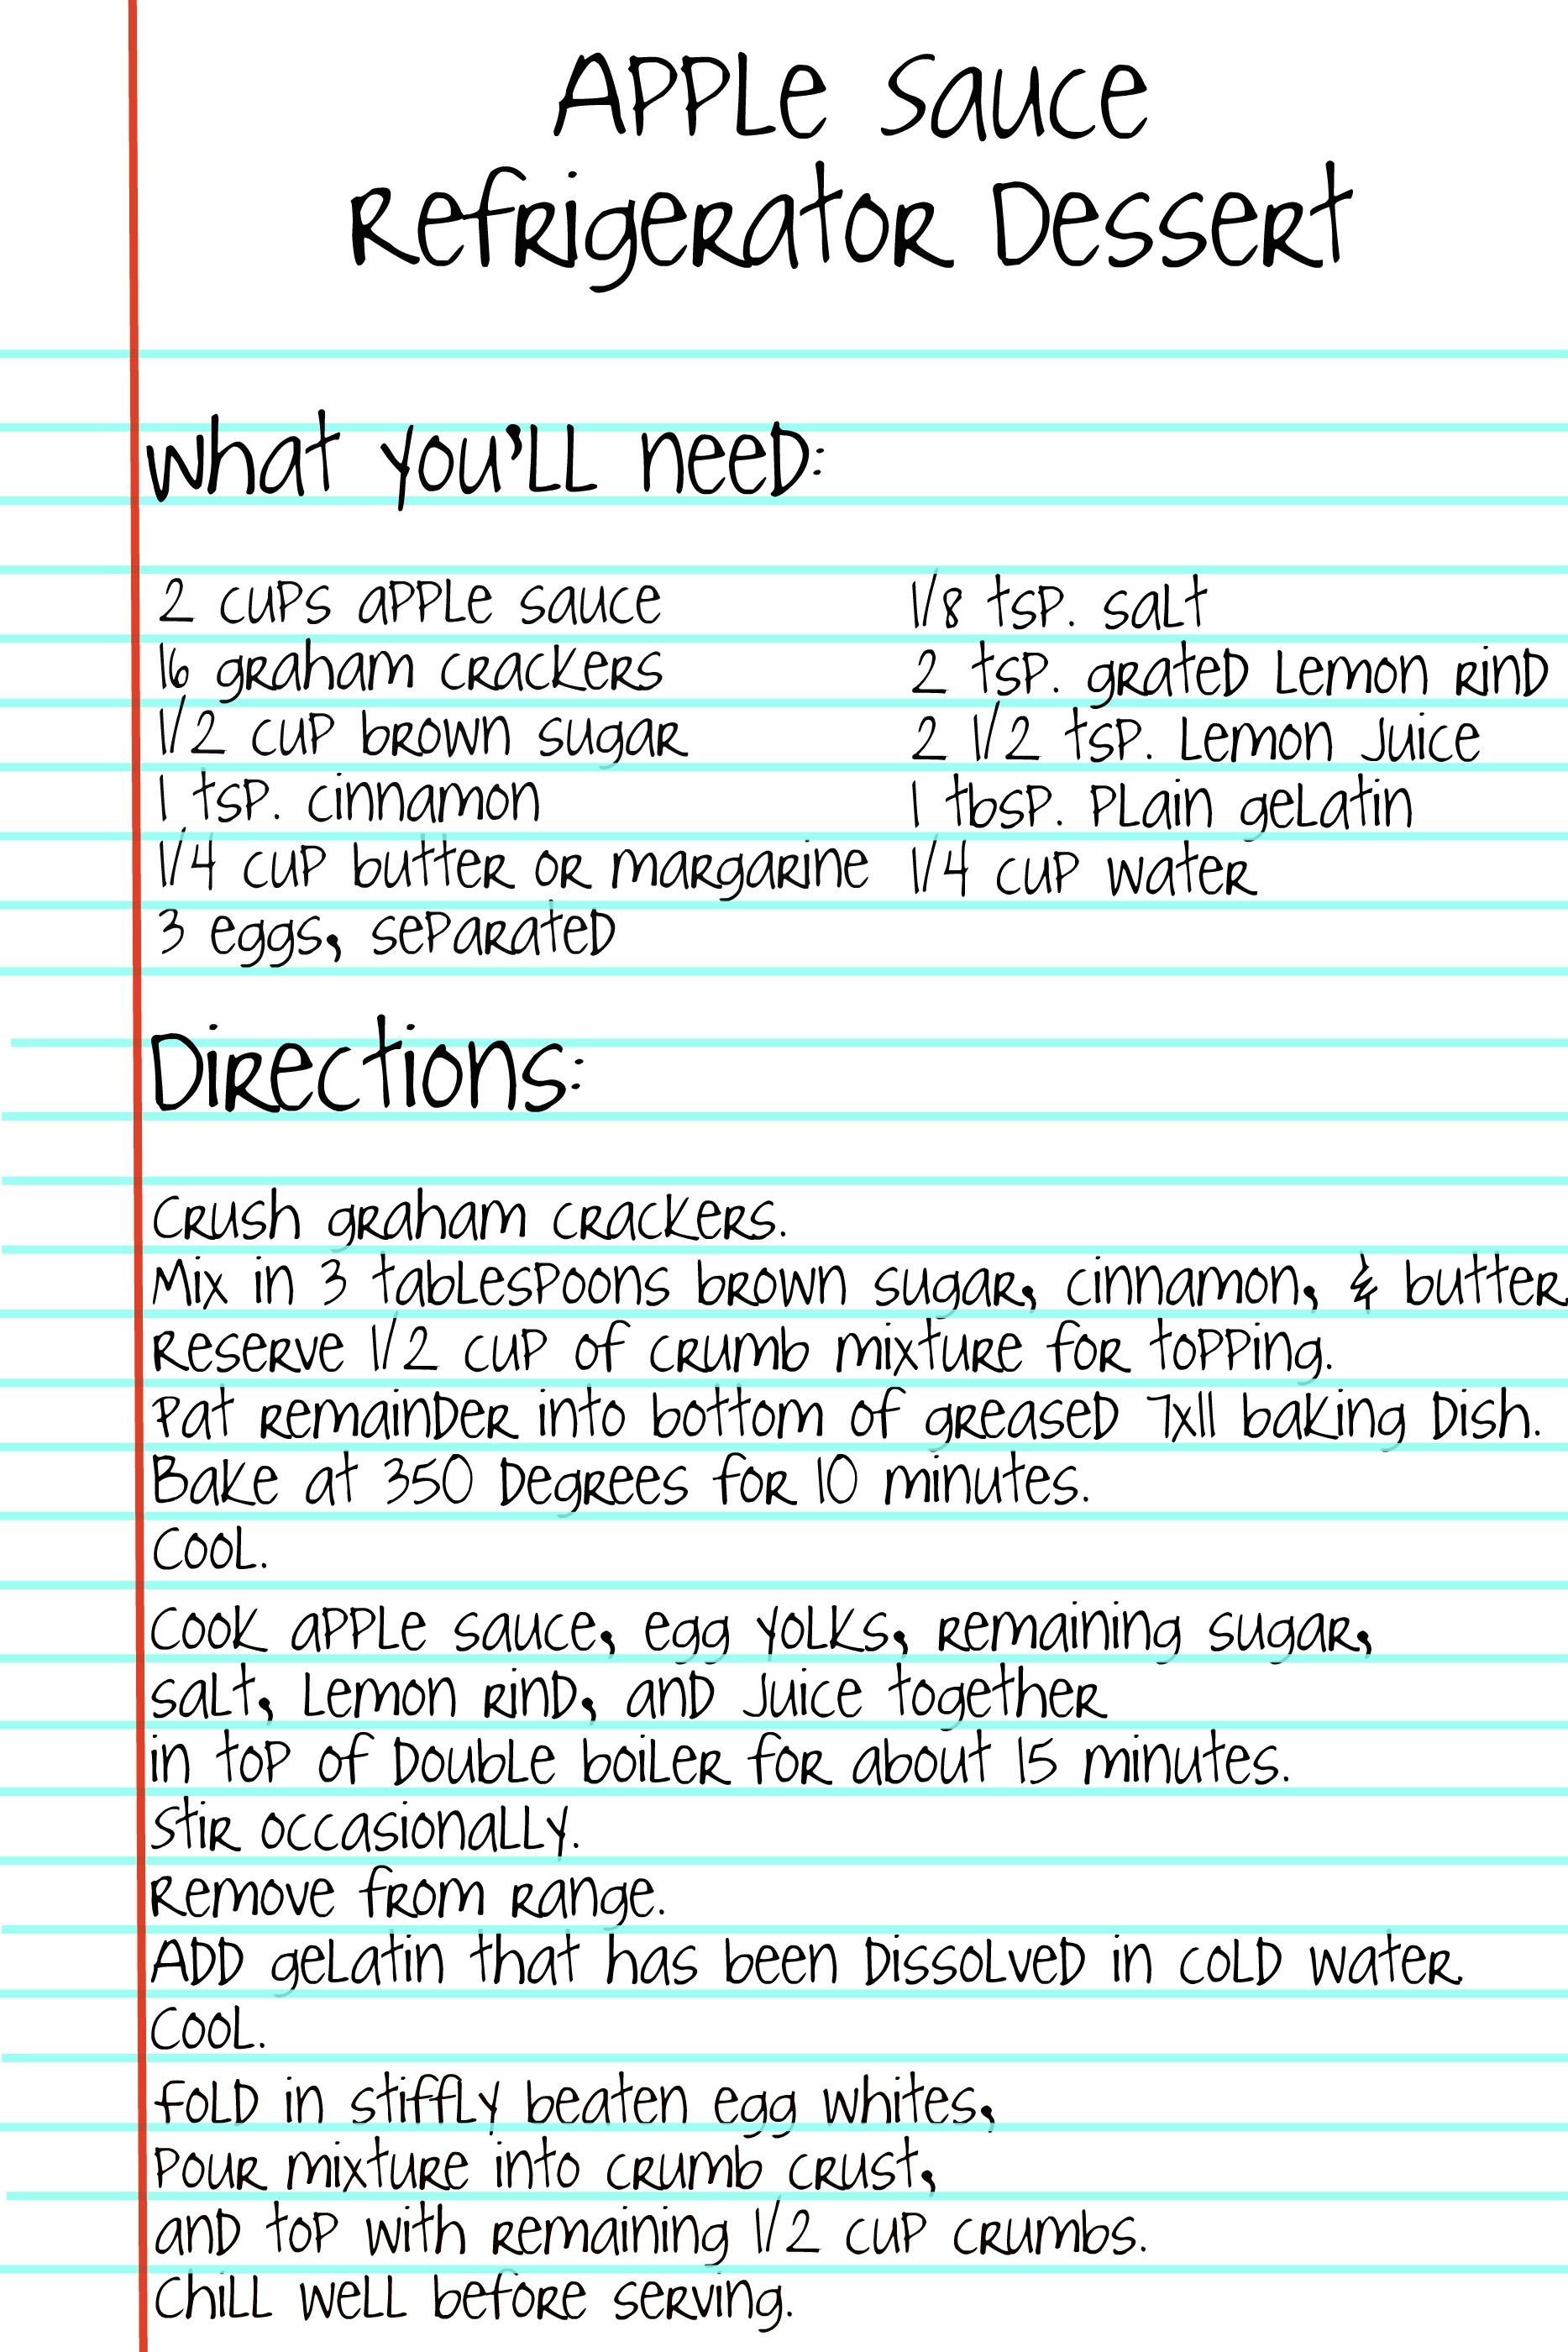 Apple Sauce
Refrigerator Dessert
What you'll need:
2 cups apple sauce
16 graham crackers
1/2 cup brown sugar
1 tsp. cinnamon
1/4 cup butter or margarine
3 eggs, separated
1/8 tsp. salt
2 tsp. grated lemon rind
2 1/2 tsp. lemon juice
1 tbsp. plain gelatin
1/4 cup water
Directions:
Crush graham crackers.
Mix in 3 tablespoons brown sugar, cinnamon, & butter.
Reserve 1/2 cup of crumb mixture for topping.
Pat remainder into bottom of greased 7x11 baking dish.
Bake at 350 degrees for 10 minutes.
Cool.
Cook apple sauce, egg yolks, remaining sugar,
salt, lemon rind, and juice together
in top of double boiler for about 15 minutes.
Stir occasionally.
Remove from range.
Add gelatin that has been dissolved in cold water.
Cool.
Fold in stiffly beaten egg whites,
pour mixture into crumb crust,
and top with remaining 1/2 cup crumbs.
Chill well before serving.